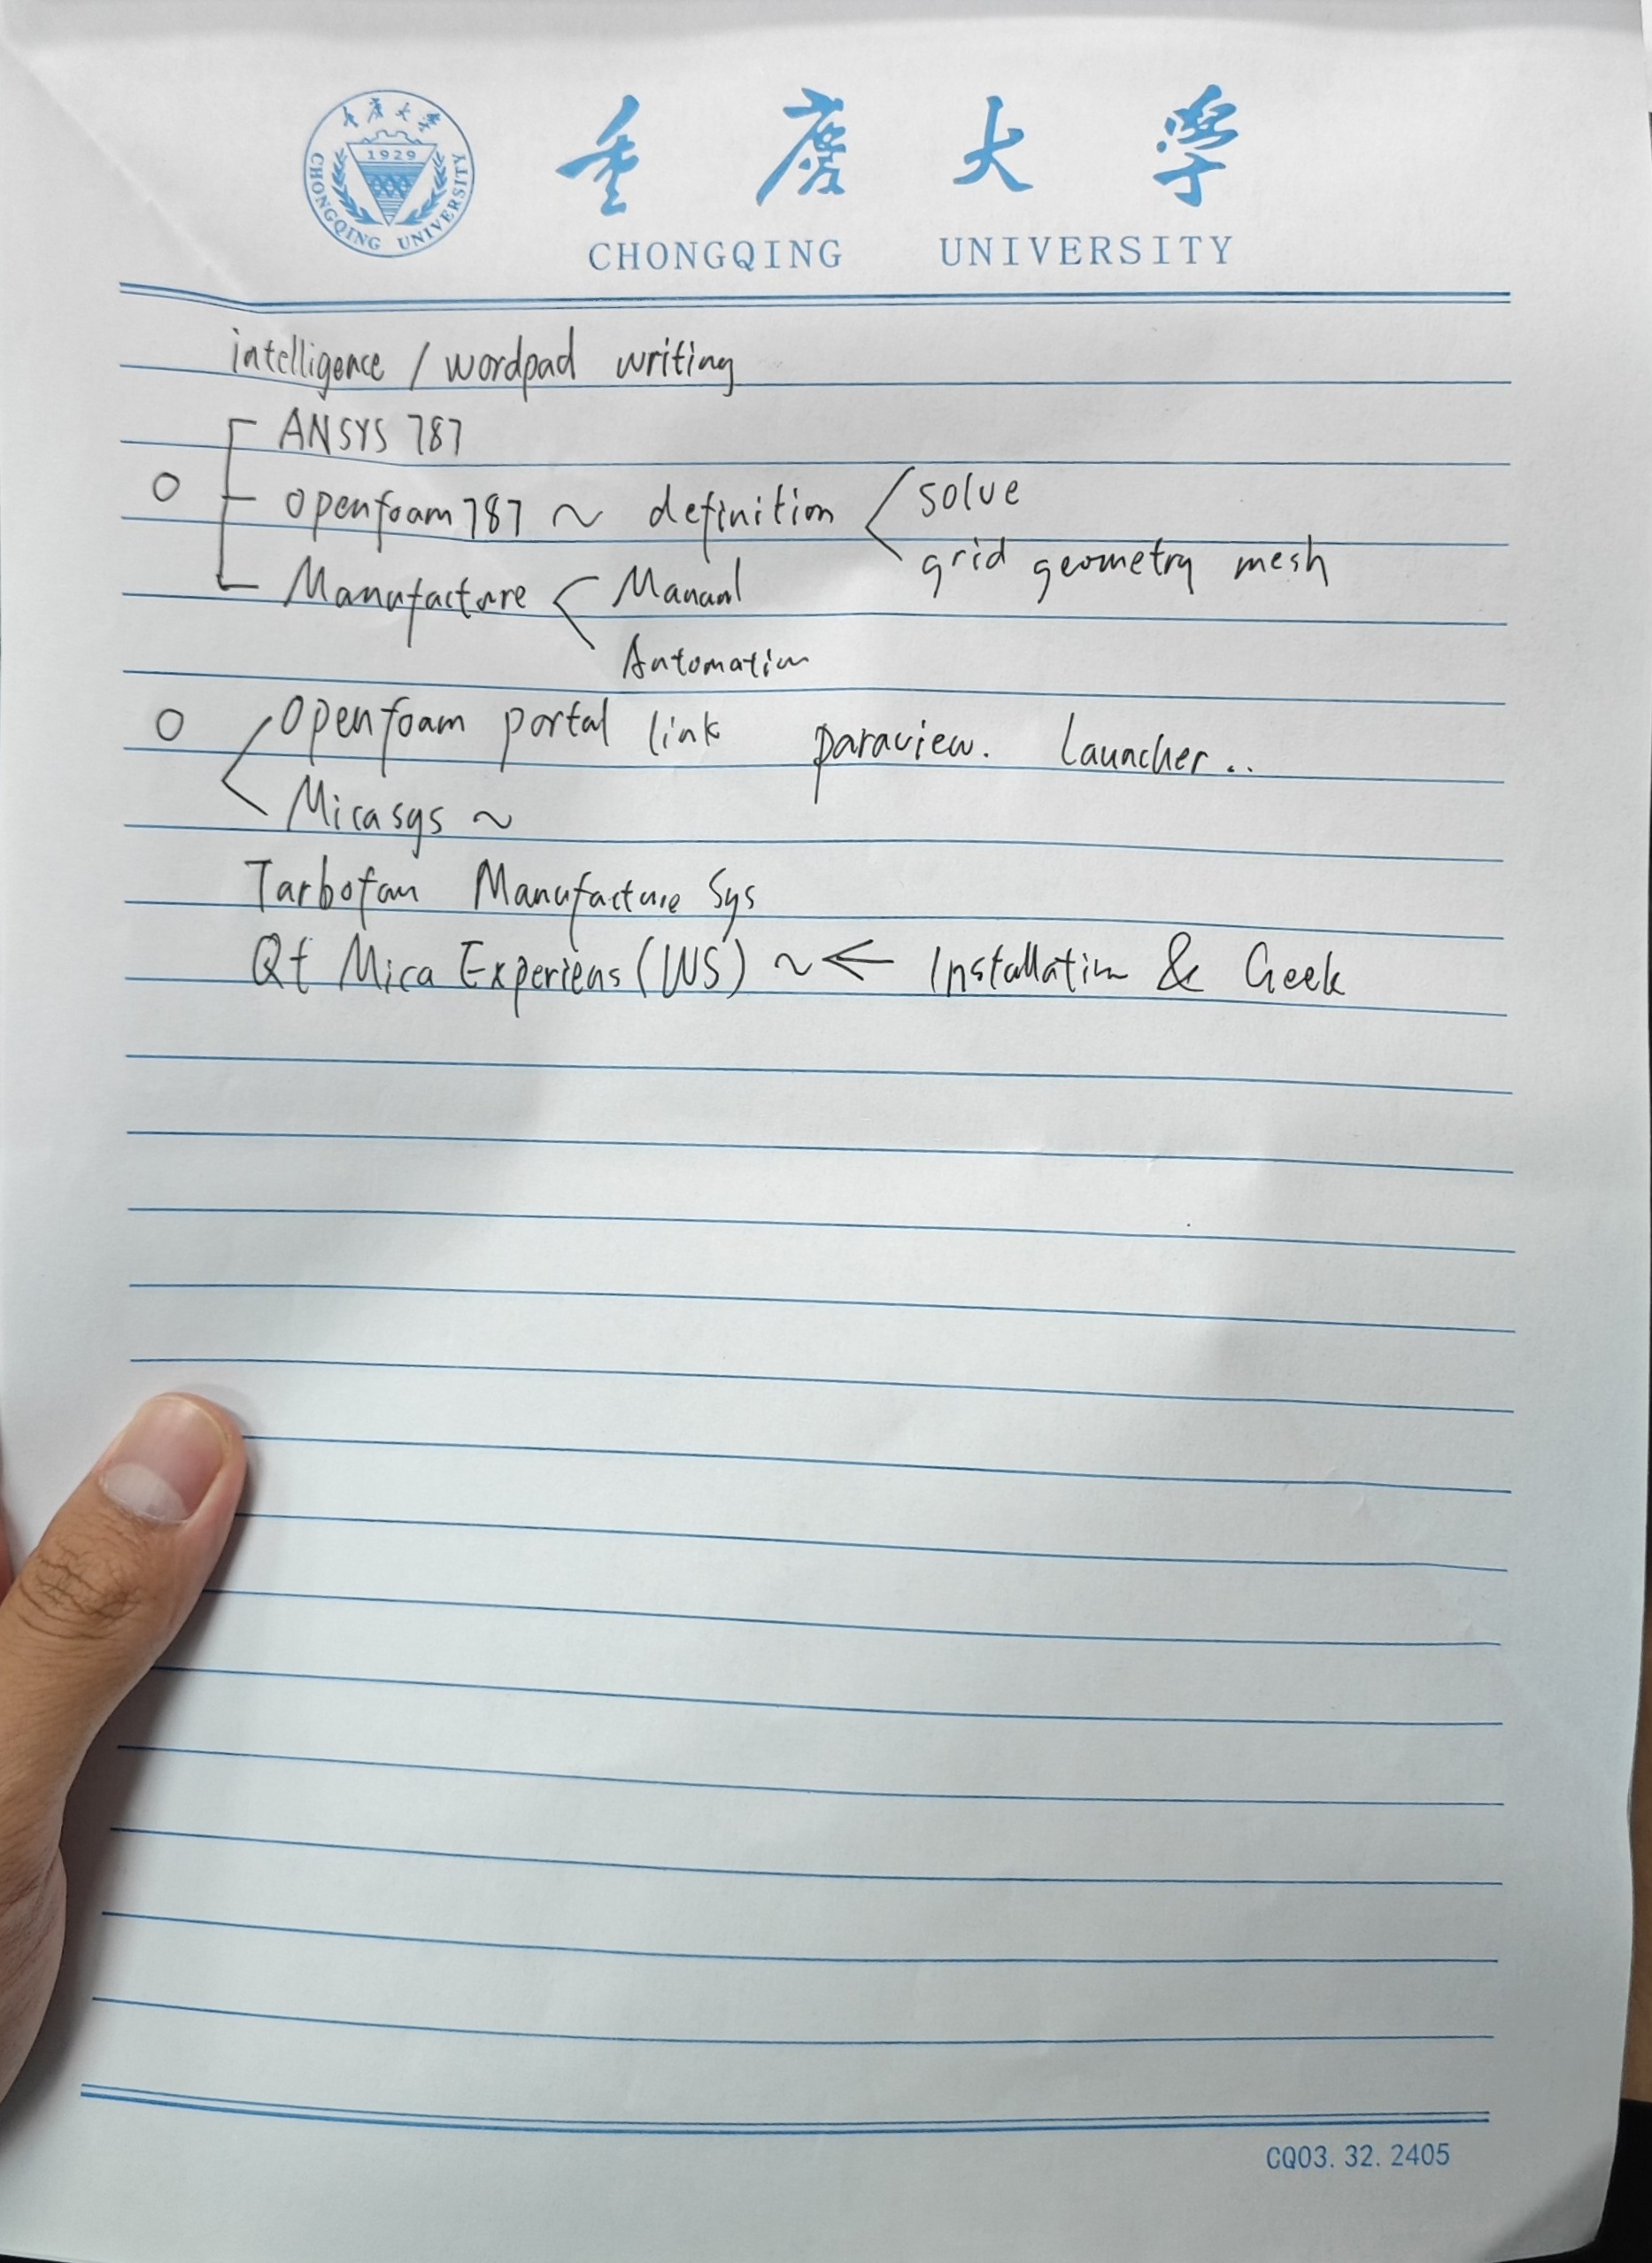 重庆大学
1929
CHONGQING UNIVERSITY
重庆大学
CHONGQING UNIVERSITY
intelligence / wordpad writing
ANSYS 787
openfoam 787 ~ definition < solve
grid geometry mesh
Manufacture < Manual
Automation
Openfoam portal link paraview. Launcher..
Micasys ~
Tarbofan Manufacture Sys
Qt Mica Experiens (WS) ~ ← Installation & Geek
CQ03.32.2405